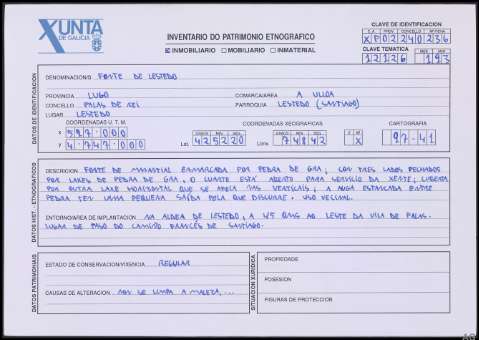 XUNTA
DE GALICIA
INVENTARIO DO PATRIMONIO ETNOGRÁFICO
INMOBILIARIO MOBILIARIO INMATERIAL
CLAVE DE IDENTIFICACION
XP02240236
CLAVE TEMATICA
12126 193
DATOS DE IDENTIFICACION
DENOMINACION FONTE DE LESTEDO
PROVINCIA LUGO COMARCA/AREA A ULLOA
CONCELLO PALAS DE REI PARROQUIA LESTEDO (SANTIAGO)
LUGAR LESTEDO
COORDENADAS U.T.M. COORDENADAS XEOGRAFICAS CARTOGRAFIA
X 597.000 Lat. 425220 Lonx. 74842 X 97-41
Y 4.747.000
DATOS HIST. - ETNOGRAFICOS
DESCRICION FONTE DE MANANTIAL ENMARCADA POR PEDRA DE GRA, CON TRES LADOS PECHADOS
POR LAXES DE PEDRA DE GRA, O CUARTO ESTÁ ABERTO PARA SERVICIO DA XENTE; CUBERTA
POR OUTRA LAXE HORIZONTAL QUE SE APOIA NAS VERTICAIS; A AUGA ESTANCADA ENTRE
PEDRA TEN UNHA PEQUENA SAÍDA POLA QUE DISCORRE. USO VECIÑAL.
ENTORNO/AREA DE IMPLANTACION NA ALDEA DE LESTEDO, A 45 AO LESTE DA VILA DE PALAS.
LUGAR DE PASO DO CAMIÑO FRANCÉS DE SANTIAGO.
DATOS PATRIMONIAIS
ESTADO DE CONSERVACION/VIXENCIA REGULAR
CAUSAS DE ALTERACION NON SE LIMPA A MALEZA, ...
SITUACION XURIDICA
PROPIEDADE
POSESION
FIGURAS DE PROTECCION